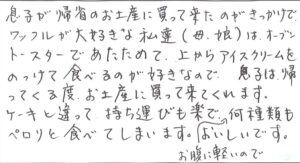 息子が帰省のお土産に買って来たのがきっかけで
ワッフルが大好きな私達（母、娘）は、オーブン
トースターであたためて、上からアイスクリームを
のっけて食べるのが好きなので、息子は帰
ってくる度、お土産に買って来てくれます。
ケーキと違って持ち運びも楽で、何種類も
ペロリと食べてしまいます。おいしいです。
お腹に軽いので